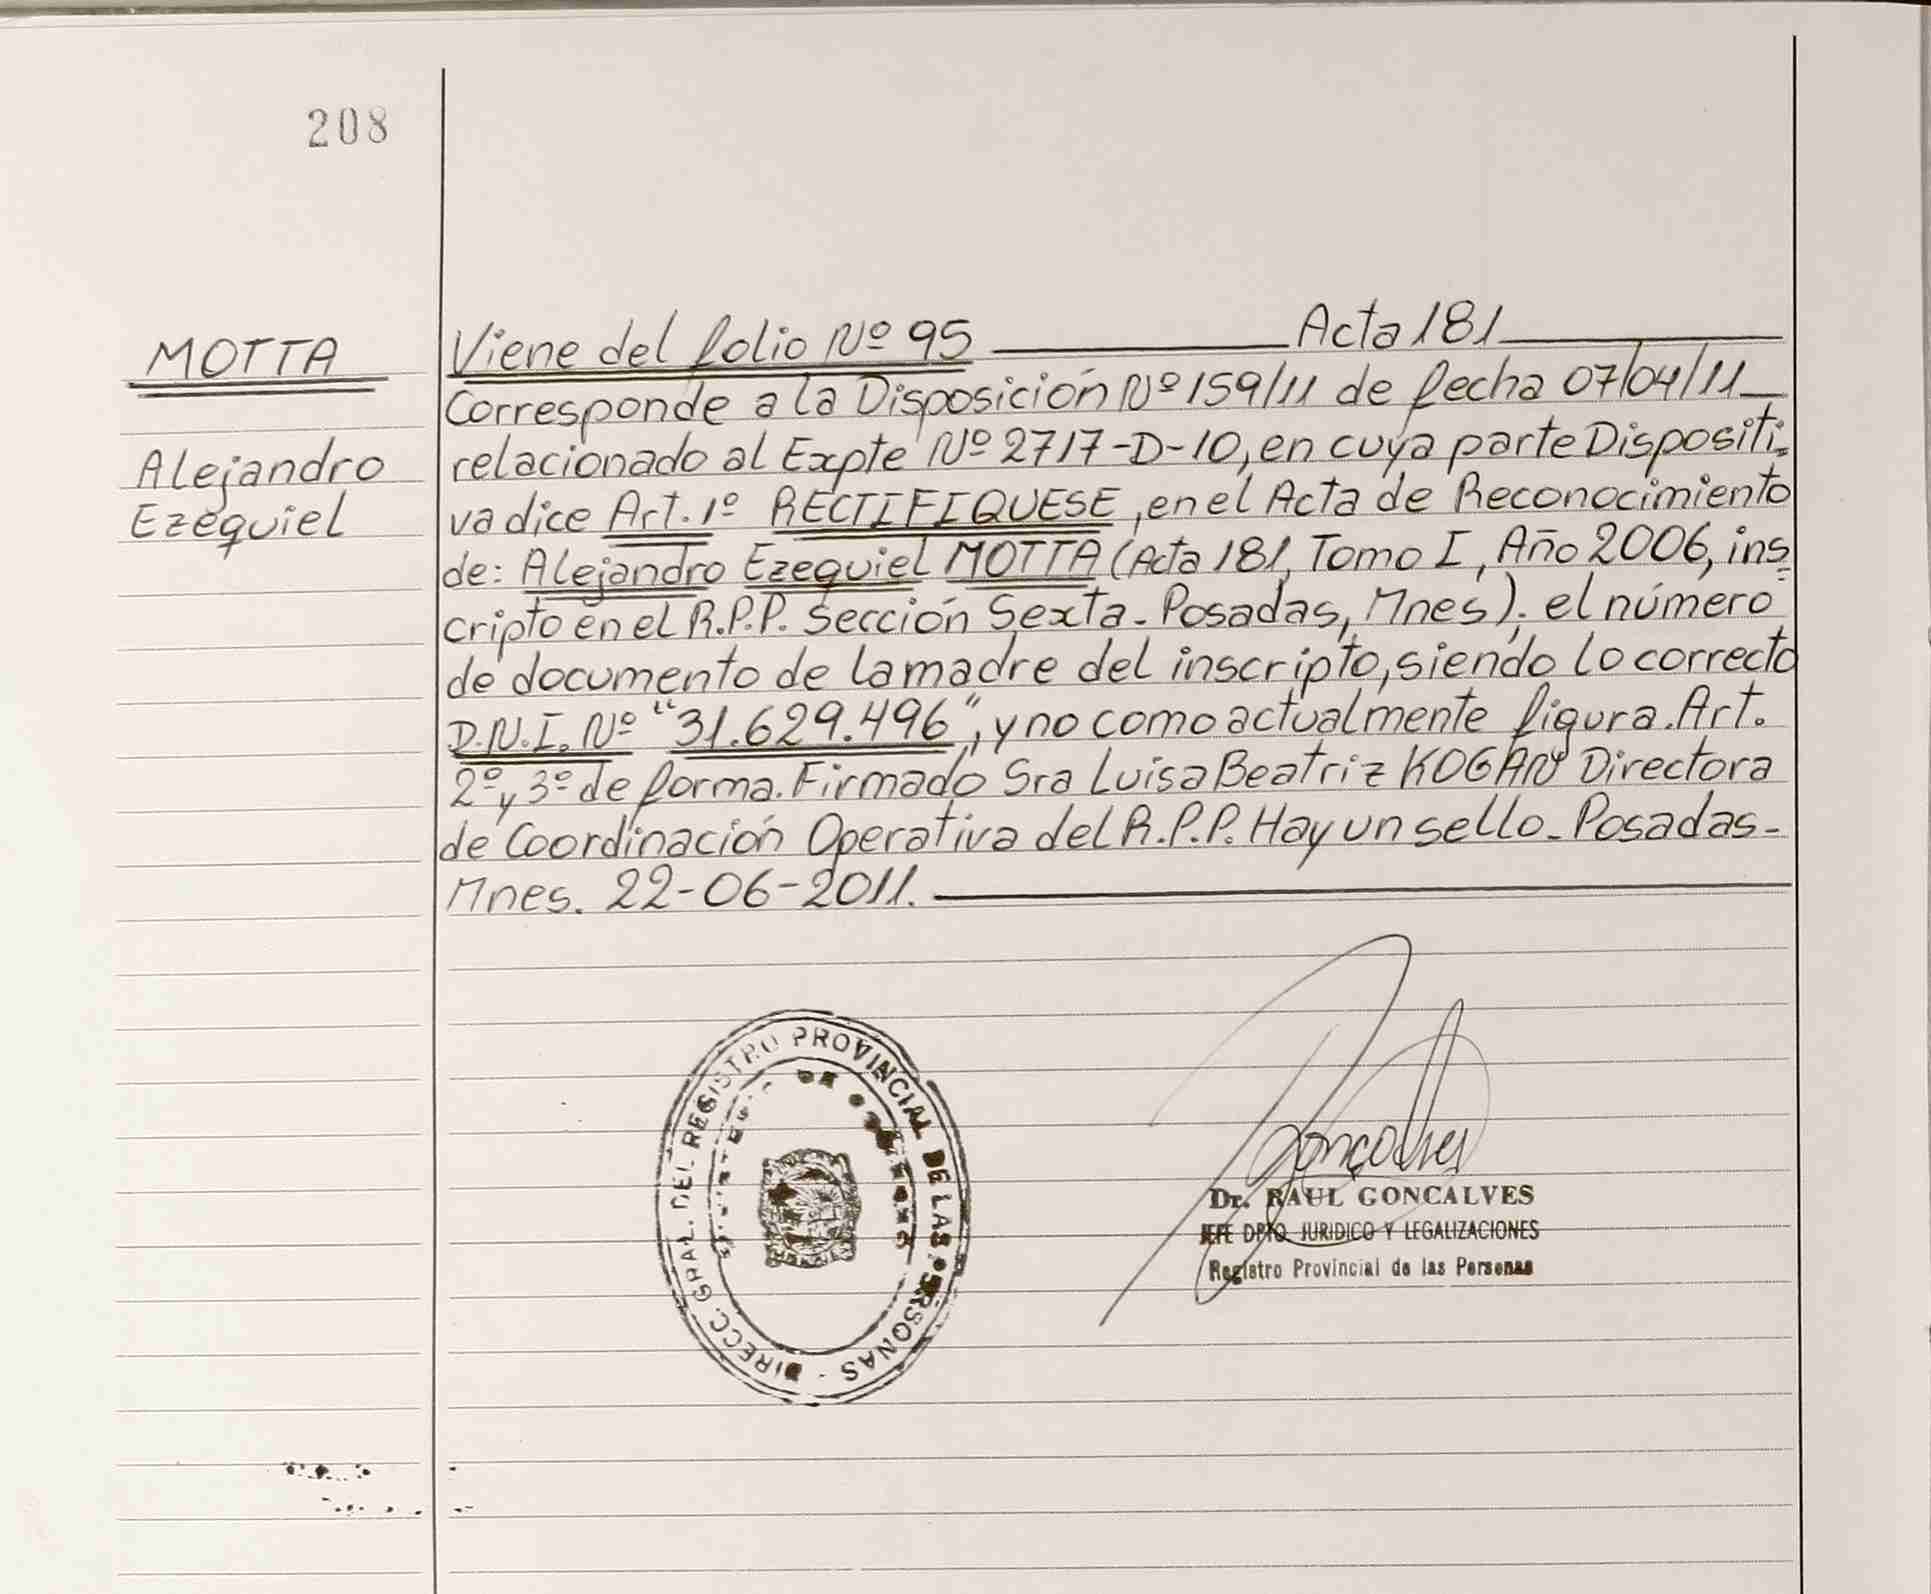 208
MOTTA
Alejandro
Ezequiel
Viene del folio Nº 95 Acta 181
Corresponde a la Disposición Nº 159/11 de fecha 07/04/11
relacionado al Expte Nº 2717-D-10, en cuya parte Dispositi-
va dice Art. 1º RECTIFIQUESE, en el Acta de Reconocimiento
de: Alejandro Ezequiel MOTTA (Acta 181, Tomo I, Año 2006, ins-
cripto en el R.P.P. Sección Sexta - Posadas, Mnes). el número
de documento de la madre del inscripto, siendo lo correcto
D.N.I. Nº "31.629.496", y no como actualmente figura. Art.
2º y 3º de forma. Firmado Sra Luisa Beatriz KOGAN Directora
de Coordinación Operativa del R.P.P. Hay un sello - Posadas -
Mnes. 22-06-2011.
DIRECC. GRAL. DEL REGISTRO PROVINCIAL DE LAS PERSONAS -
Goncalves
Dr. RAUL GONCALVES
JEFE DPTO. JURIDICO Y LEGALIZACIONES
Registro Provincial de las Personas